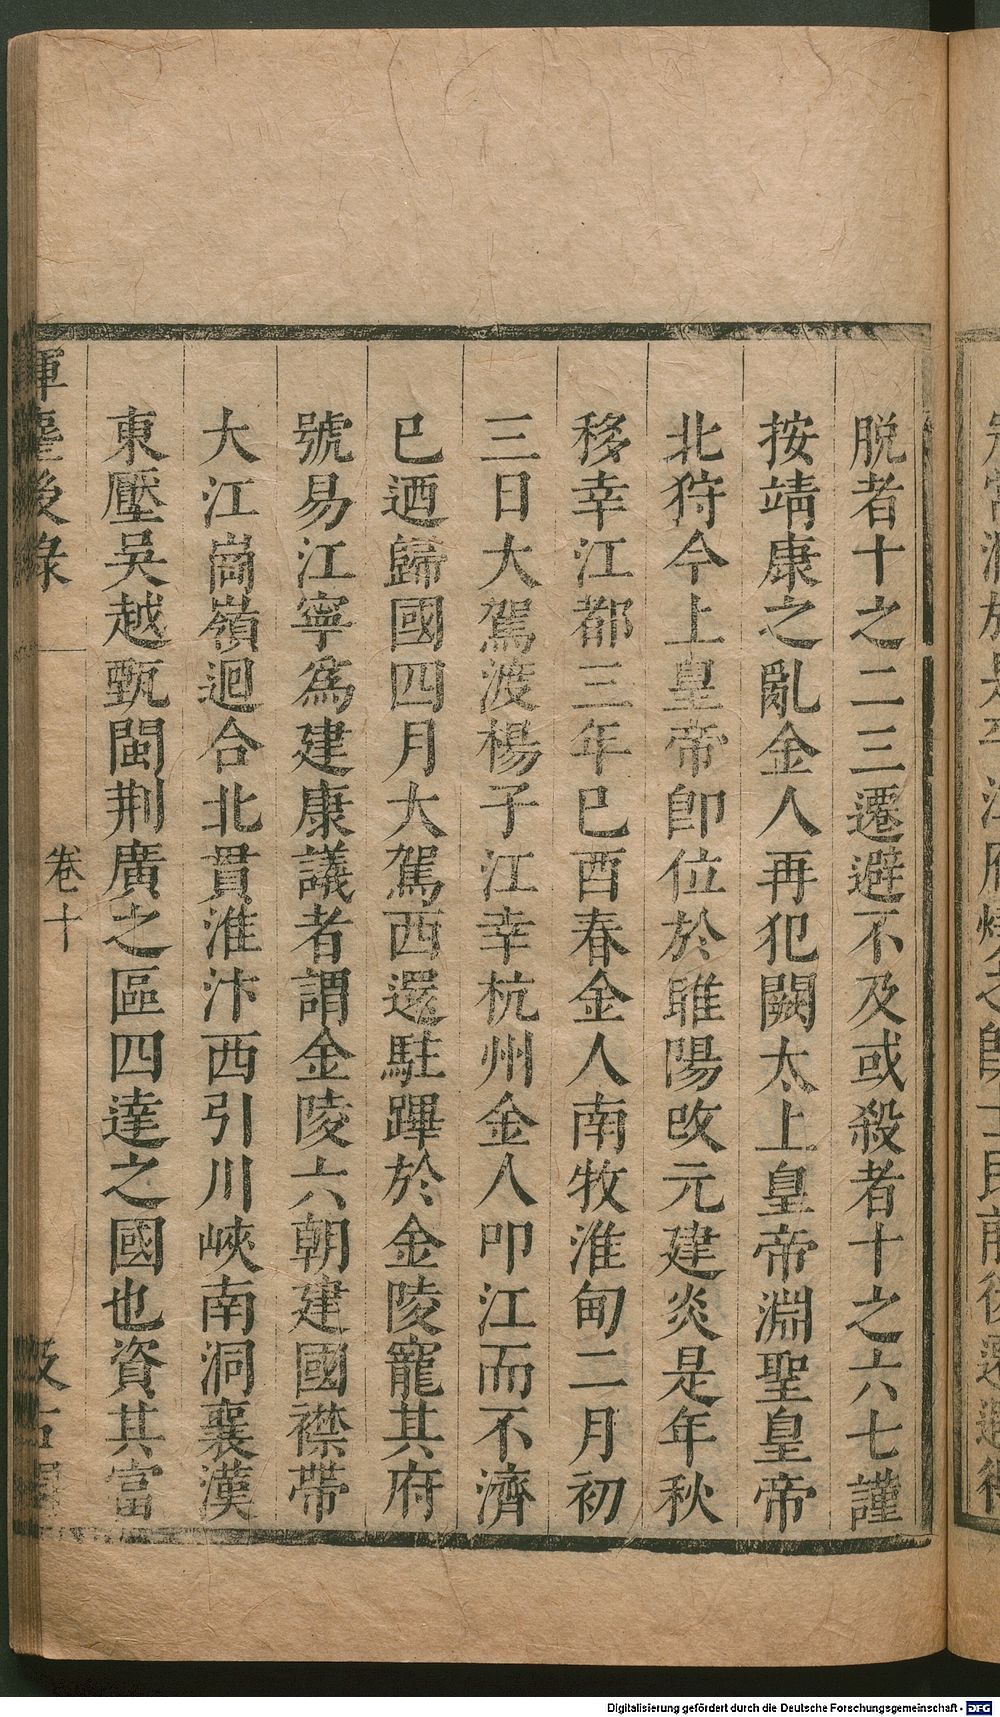 脱者十之二三遷避不及或殺者十之六七謹
按靖康之亂金人再犯闕太上皇帝淵聖皇帝
北狩今上皇帝卽位於睢陽改元建炎是年秋
移幸江都三年巳酉春金人南牧淮甸二月初
三日大駕渡楊子江幸杭州金人叩江而不濟
巳迺歸國四月大駕西還駐蹕於金陵寵其府
號易江寧爲建康議者謂金陵六朝建國襟帶
大江崗嶺迴合北貫淮汴西引川峽南洞襄漢
東壓吳越甄閩荆廣之區四達之國也資其富
揮麈後錄
卷十
汲古閣
Digitalisierung gefördert durch die Deutsche Forschungsgemeinschaft - DFG